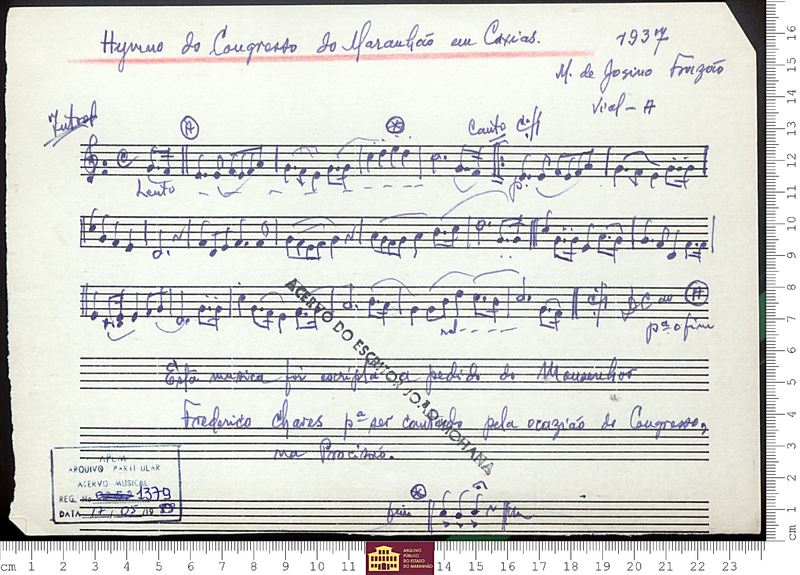 Hymno do Congresso do Maranhão em Caxias. 1937
M. de Josino Frazão
Introd
A
Canto
Lento
p.
D.C. ao A
pª o fim
Esta musica foi escripta a pedido do Monsenhor
Frederico Chaves pª ser cantado pela ocazião do Congresso,
na Procissão.
fim
ACERVO DO ESCRITOR JOÃO MOHANA
APEM
ARQUIVO PARTICULAR
ACERVO MUSICAL
REG. No 1379
DATA 17/05/19
ARQUIVO
PÚBLICO
DO ESTADO
DO MARANHÃO
cm 1 2 3 4 5 6 7 8 9 10 11 14 15 16 17 18 19 20 21 22 23
cm 1 2 3 4 5 6 7 8 9 10 11 12 13 14 15 16